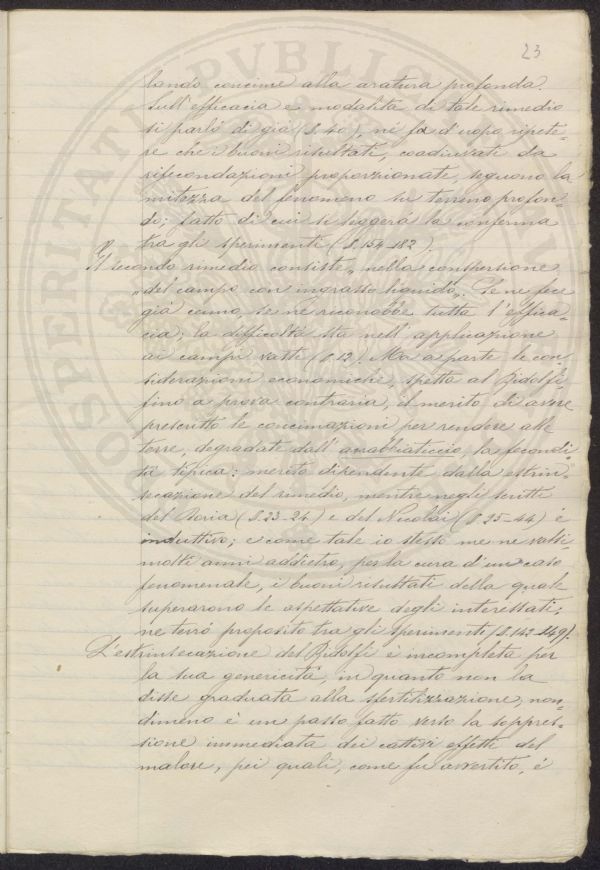 23
lando concime alla aratura profonda.
Sull'efficacia e modalità di tale rimedio
si parlò di già (§. 40), nè fa d'uopo ripete=
re che i buoni risultati, coadiuvati da
rifecondazioni proporzionate, seguono la
mitezza del fenomeno su terreno profon=
do; fatto di cui si leggerà la conferma
tra gli sperimenti (§. 154 182).
Il secondo rimedio consiste „nella conspersione
„del campo con ingrasso liquido„. Se ne fece
già cenno, se ne riconobbe tutta l'effica=
cia; la difficoltà sta nell'applicazione
ai campi vasti (§. 12). Ma a parte le con=
siderazioni economiche, spetta al Ridolfi,
fino a prova contraria, il merito di avere
prescritto le concimazioni per rendere alle
terre, degradate dall'arrabbiaticcio, la fecondi=
tà tipica: merito dipendente dalla estrin=
secazione del rimedio, mentre negli scritti
del Doria (§. 23-24) e del Nicolai (§. 25-44) è
induttivo; e come tale io stesso me ne valsi
molti anni addietro, per la cura d'un caso
fenomenale, i buoni risultati della quale
superarono le aspettative degli interessati;
ne terrò proposito tra gli sperimenti (§. 142 149).
L'estrinsecazione del Ridolfi è incompleta per
la sua genericità, in quanto non la
disse graduata alla sfertilizzazione, non=
dimeno è un passo fatto verso la soppres=
sione immediata dei cattivi effetti del
malore, pei quali, come fu avvertito, è